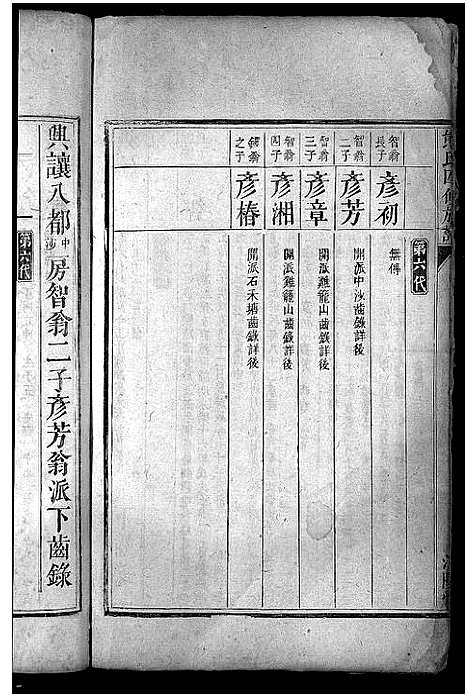 第六代
智翁長子 彥初 無傳
智翁二子 彥芳 開派中沙齒錄詳後
智翁三子 彥章 開派雞籠山齒錄詳後
智翁四子 彥湘 開派雞籠山齒錄詳後
之子 彥椿 開派石禾塘齒錄詳後
第六代
興讓八都中沙房智翁二子彥芳翁派下齒錄